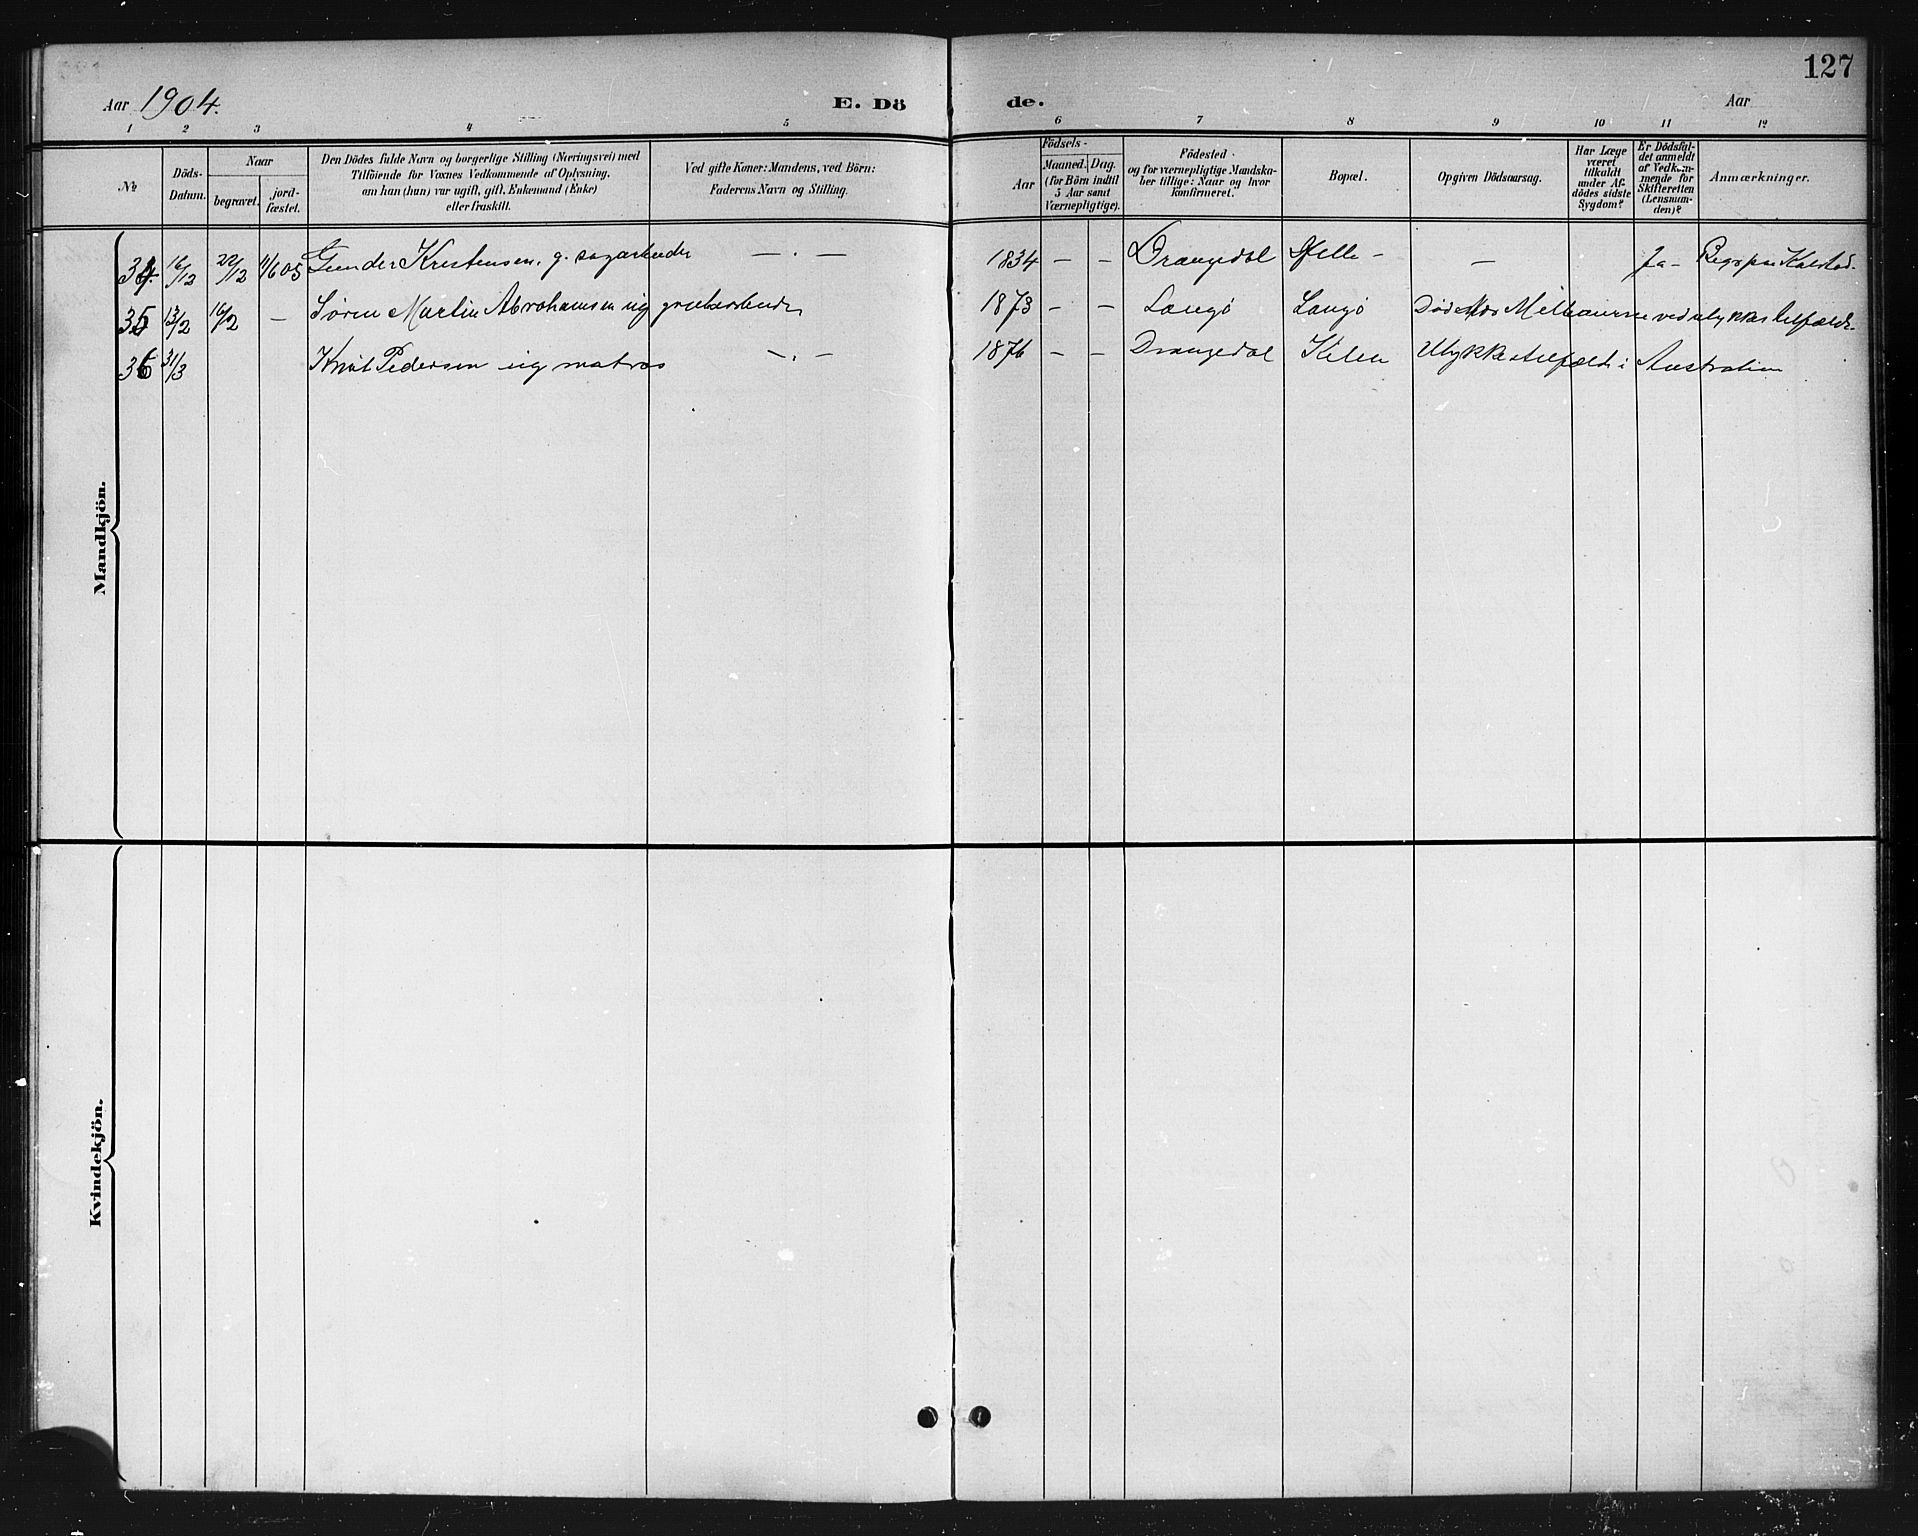 127
Aar 1904. E. Dö de. Aar
1 2 3 4 5 6 7 8 9 10 11 12
№
Döds-Datum.
Naar
begravet. jord-fæstet.
Den Dödes fulde Navn og borgerlige Stilling (Næringsvei) med
Tilföiende for Voxnes Vedkommende af Oplysning,
om han (hun) var ugift, gift, Enkemand (Enke)
eller fraskilt.
Ved gifte Koner: Mandens, ved Börn:
Faderens Navn og Stilling.
Födsels-
Aar
Maaned. Dag.
(for Börn indtil
5 Aar samt
Værnepligtige).
Födested
og for værnepligtige Mandska-
ber tillige: Naar og hvor
konfirmeret.
Bopæl.
Opgiven Dödsaarsag.
Har Læge
været
tilkaldt
under Af-
dödes sidste
Sygdom?
Er Dödsfal-
det anmeldt
af Vedkom-
mende for
Skifteretten
(Lensman-
den)?
Anmærkninger.
Mandkjön.
34. 16/12 22/12 11/6 05 Gunder Kristensen, g. sagarbeider — . — 1834 — — Drangedal Helle — — Ja —
35 13/2 16/2 — Sören Martin Abrahamsen ug grubearbeider 1873 — — Langö Langö Död Melbourne ved ulykkestilfælde
36 31/3 Knut Pedersen ug matros — . — 1876 — — Drangedal Kilen Ulykkestilfælde i Australien
Kvindekjön.